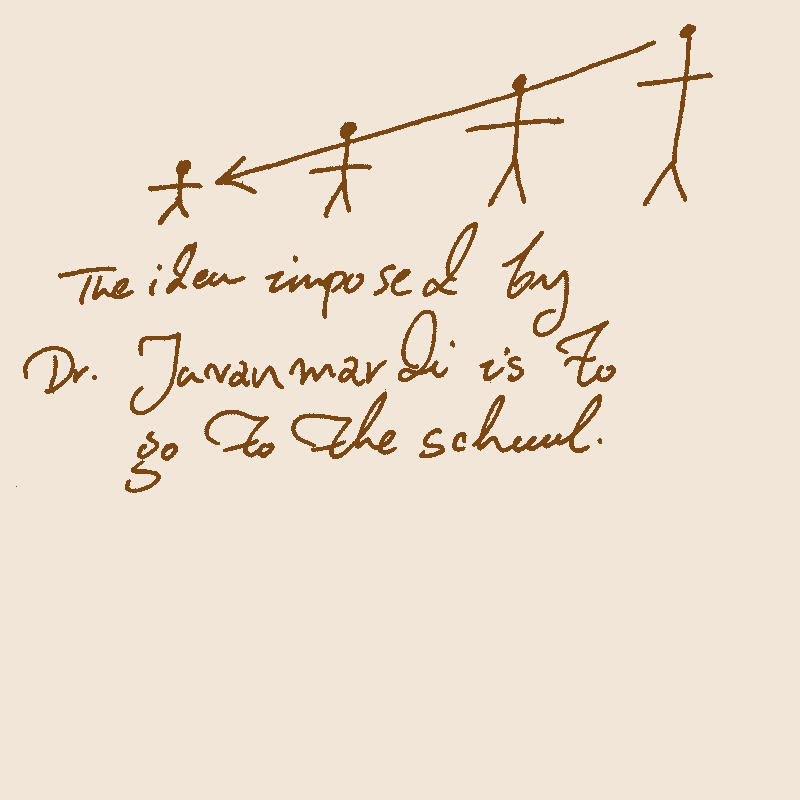 The idea imposed by
Dr. Javanmardi is to
go to the school.